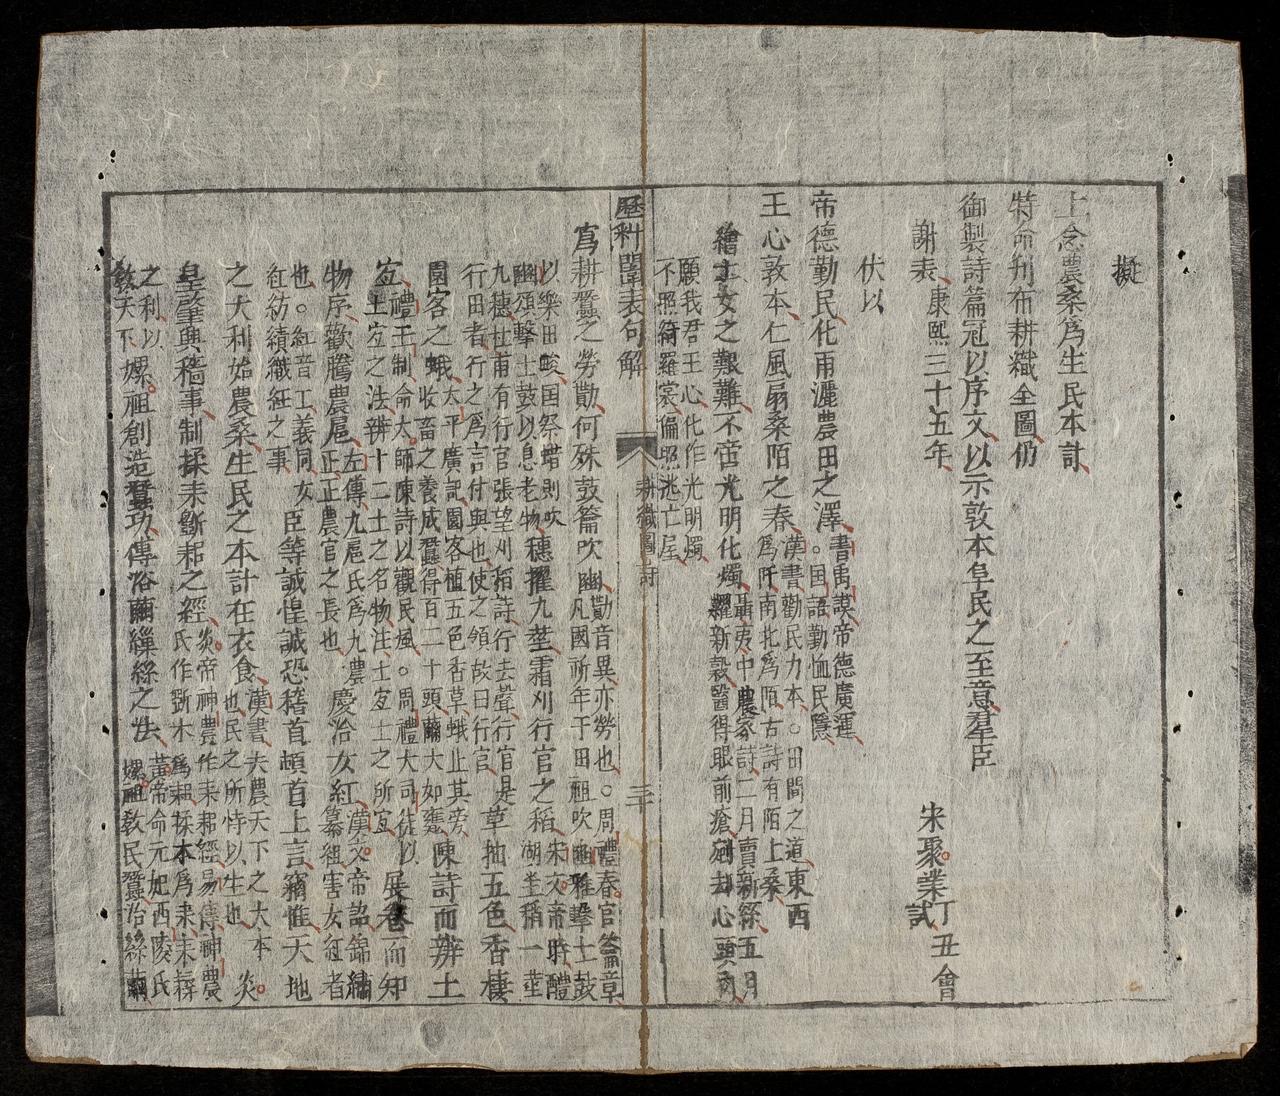 擬
上念農桑爲生民本計
特命刊布耕織全圖仍
御製詩篇冠以序文以示敦本阜民之至意羣臣
謝表康熙三十五年 朱聚業丁丑會試
伏以
帝德勤民化雨灑農田之澤書禹謨帝德廣運。国語勤恤民隱
王心敦本仁風扇桑陌之春漢書勸民力本。田間之道東西爲阡南北爲陌古詩有陌上桑
繪士女之艱難不啻光明化燭聶夷中農家詩二月賣新絲五月糶新穀醫得眼前瘡剜却心頭肉
願我君王心化作光明燭不照綺羅裳偏照逃亡屋
歷科闈表句解 耕織圖詩 三十
寫耕蠶之勞勩何殊鼓籥吹豳勩音異亦勞也。周禮春官籥章凡國祈年于田祖吹豳雅擊土鼓
以樂田畯国祭蜡則吹豳頌擊土鼓以息老物穗擢九莖霜刈行官之稻宋文帝時醴湖生稻一莖
九穗杜甫有行官張望刈稻詩行去聲行官是行田者行之爲言付與也使之領故曰行官草抽五色香棲
園客之蛾太平廣記園客植五色香草蛾止其旁收畜之養成蠶得百二十頭繭大如甕陳詩而辨土
宜禮王制命大師陳詩以觀民風。周禮大司徒以土宜之法辨十二土之名物注土宜土之所宜展卷而知
物序歡騰農扈左傳九扈氏爲九農正正農官之長也慶洽女紅漢文帝詔錦繡纂組害女紅者
也。紅音工義同女紅紡績織紝之事臣等誠惶誠恐稽首頓首上言竊惟天地
之大利始農桑生民之本計在衣食漢書夫農天下之大本也民之所恃以生也。炎
皇肇興穡事制揉耒斵耜之經炎帝神農作耒耜經易傳神農氏作斵木爲耜揉木爲耒耒耨
之利以教天下嫘祖創造蠶功傳浴繭繅絲之法黃帝命元妃西陵氏嫘祖教民蠶治絲繭